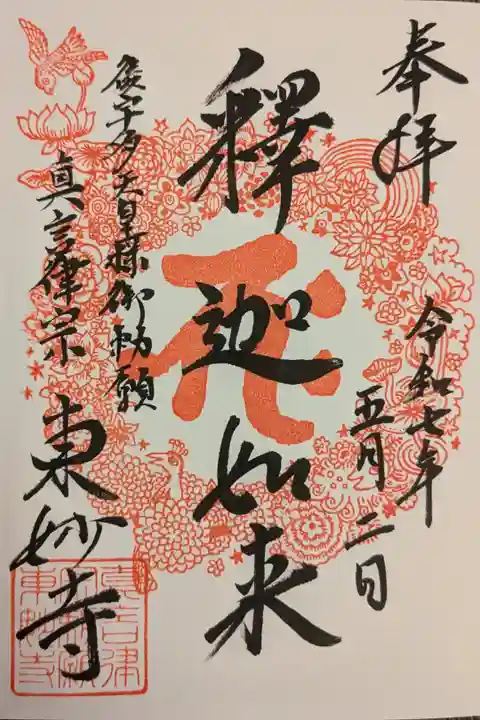 奉拝
令和七年
五月二日
釋迦如来
後宇多天皇様御勅願
真言律宗
東妙寺